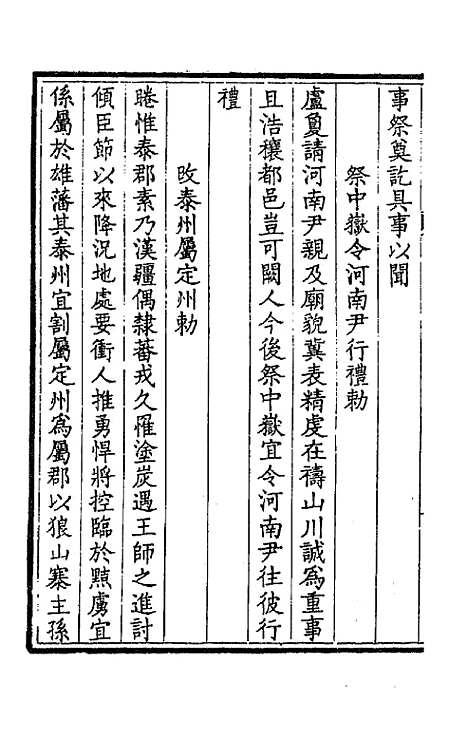 事祭奠訖具事以聞
祭中嶽令河南尹行禮勅
盧夐請河南尹親及廟貌冀表精虔在禱山川誠爲重事
且浩穰都邑豈可闕人今後祭中嶽宜令河南尹往彼行
禮
改泰州屬定州勅
睠惟泰郡素乃漢疆偶隸蕃戎久罹塗炭遇王師之進討
傾臣節以來降況地處要衝人推勇悍將控臨於黠虜宜
係屬於雄藩其泰州宜割屬定州爲屬郡以狼山寨主孫